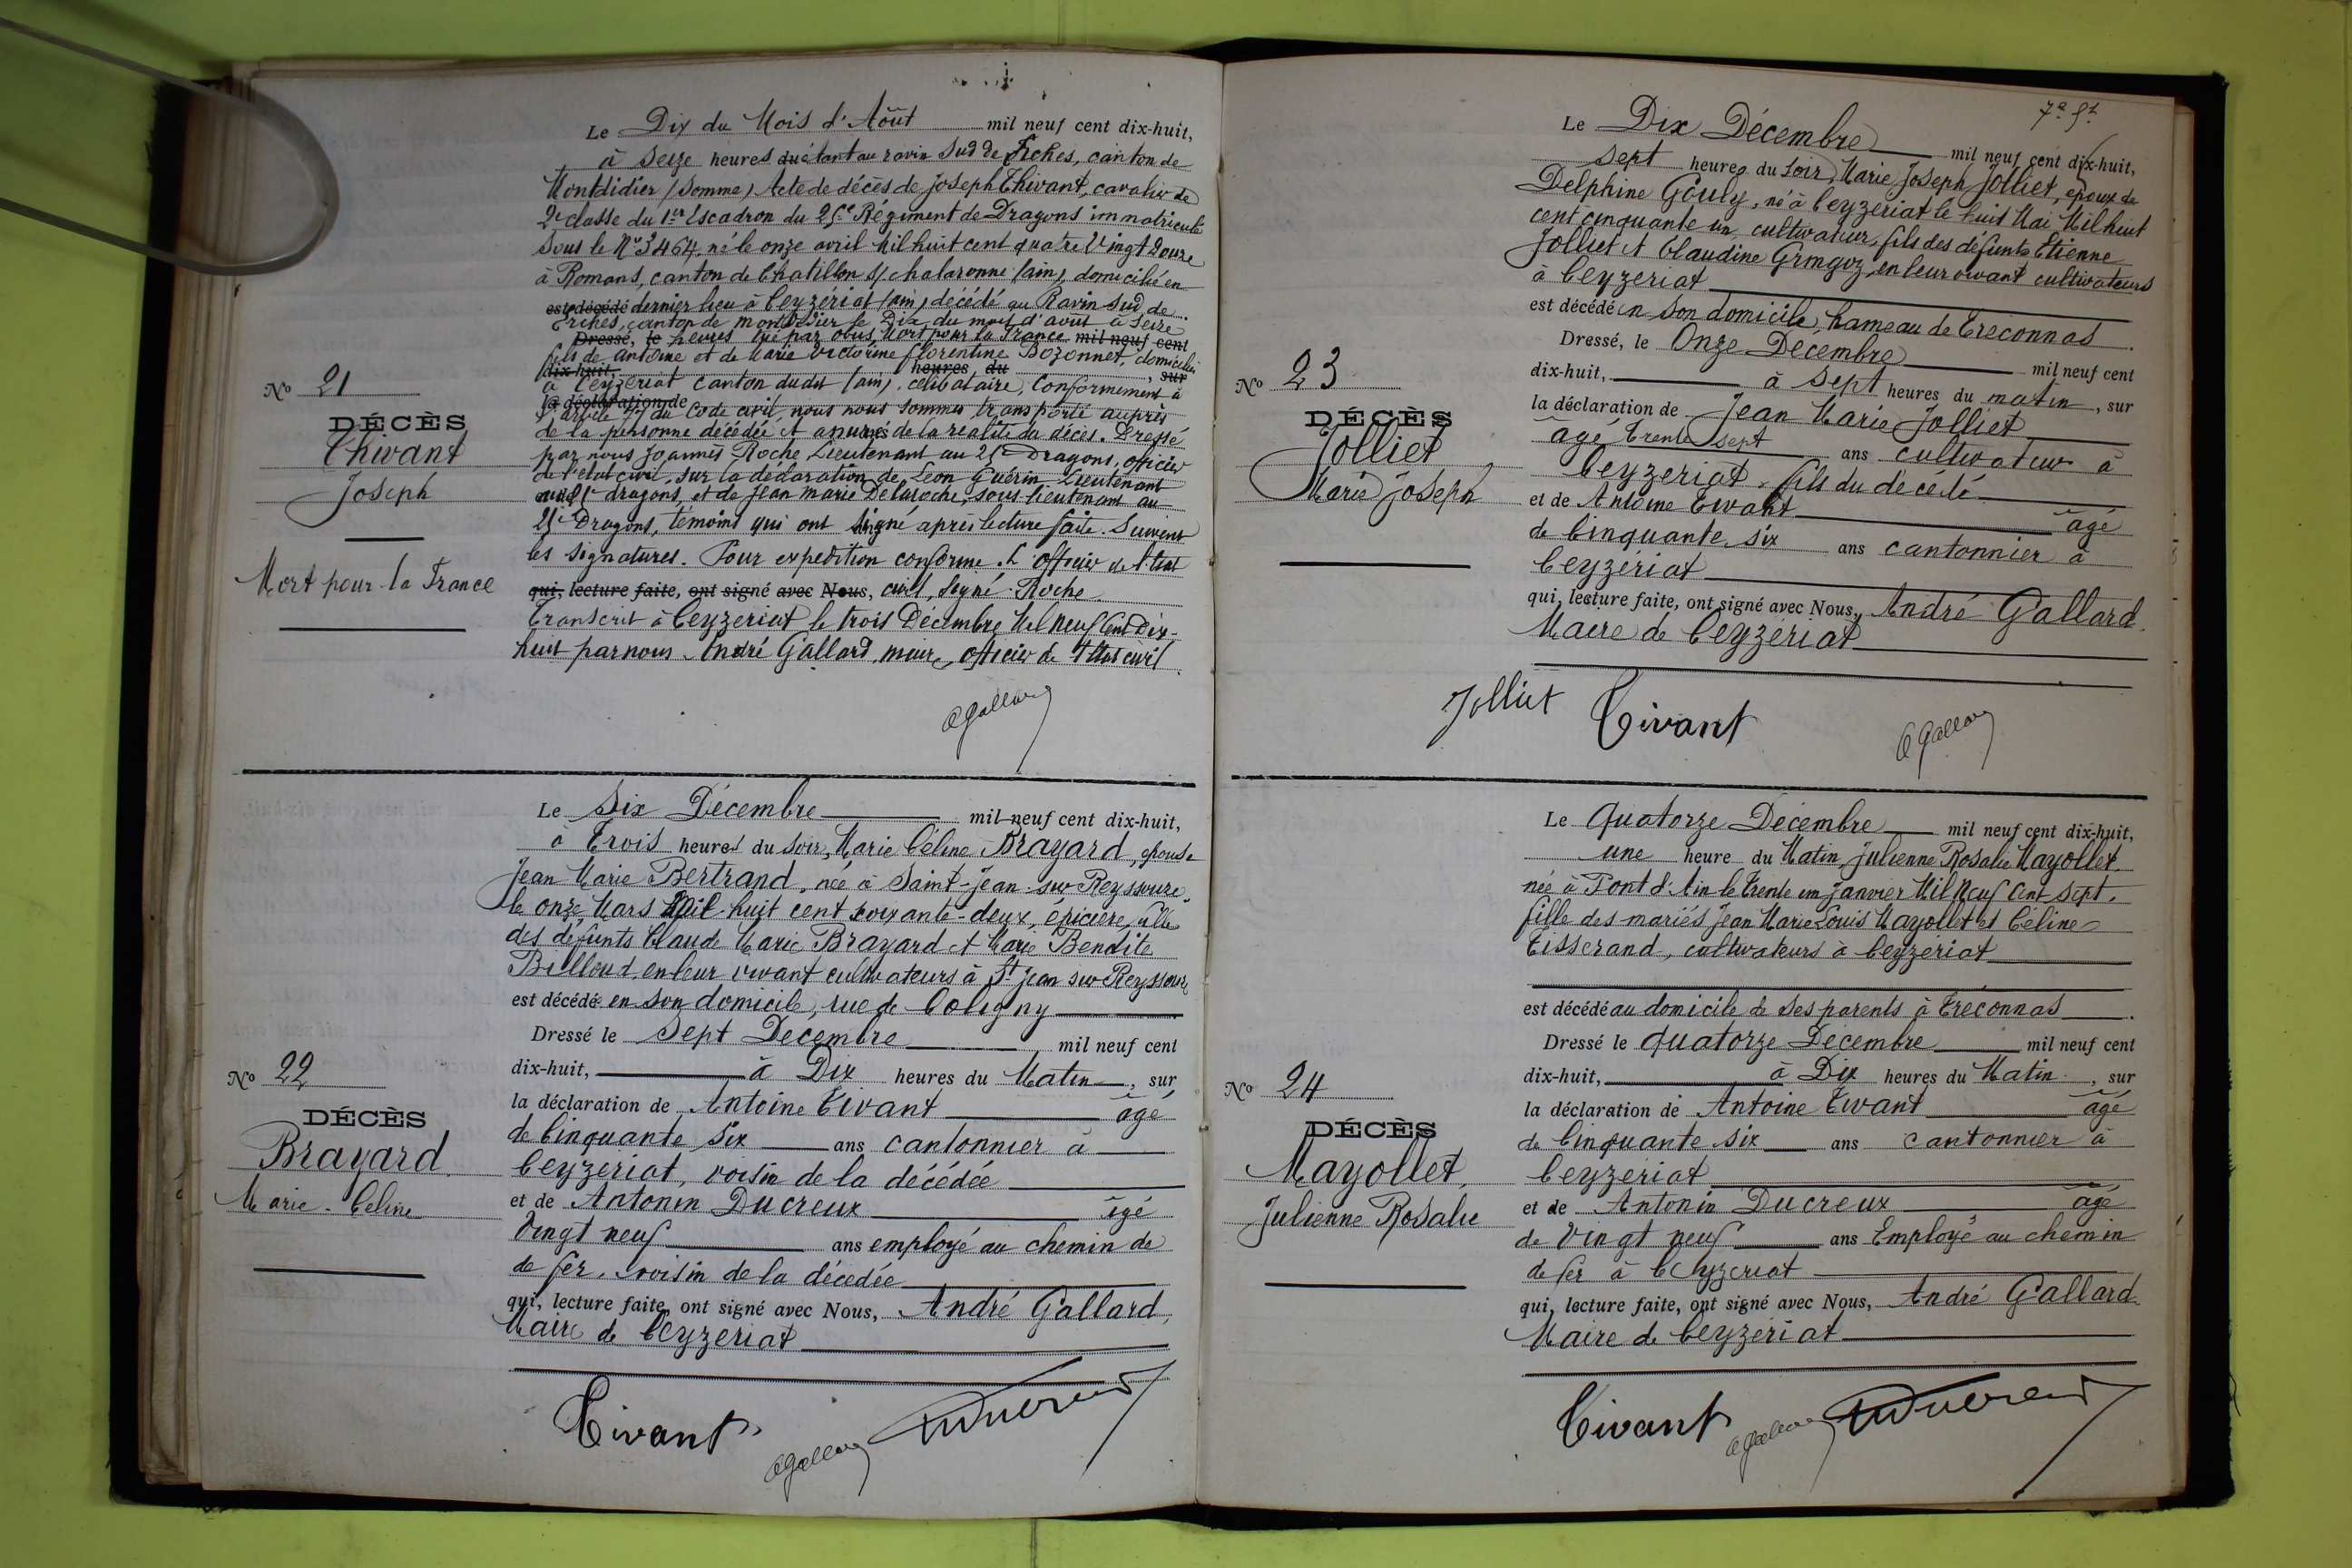 Le Dix du Mois d'Août mil neuf cent dix-huit,
à seize heures du étant au ravin Sud de Fiches, canton de
Montdidier (Somme) Acte de décès de Joseph Thivant, cavalier de
2e classe du 1er Escadron du 25e Régiment de Dragons immatriculé
sous le No 3464, né le onze avril Mil huit cent quatre Vingt Douze
à Romans, canton de Chatillon s/ chalaronne (ain), domicilié en
est décédé dernier lieu à Ceyzériat (ain) décédé au Ravin Sud de
Erches, canton de montdidier le Dix du mois d'août à Seize
Dressé, le heures tué par obus, Mort pour la France mil neuf cent
fils de Antoine et de Marie Victorine Florentine Bozonnet, domiciliés
dix-huit, heures du , sur
à Ceyzériat canton dudit (ain), célibataire, Conformément à
la déclaration de
l'article 77 du Code civil, nous nous sommes transporté auprès
de la personne décédée et assurés de la réalité du décès. Dressé
par nous Joannès Roche Lieutenant au 25e Dragons, officier
de l'état civil, sur la déclaration de Léon Guérin Lieutenant
au 25e dragons, et de Jean marie Delaroche, sous lieutenant au
25e Dragons, témoins qui ont signé après lecture faite. Suivent
les signatures. Pour expédition conforme. L'officier de l'état
qui, lecture faite, ont signé avec Nous, civil, Signé: Roche
Transcrit à Ceyzeriat le trois Décembre Mil neuf Cent Dix-
huit par nous André Gallard, maire, officier de l'état civil
AGallard
No 21
DÉCÈS
Thivant
Joseph
Mort pour la France
Le Six Décembre mil neuf cent dix-huit,
à Trois heures du soir, Marie Céline Brayard, épouse
Jean Marie Bertrand, née à Saint-Jean-sur-Reyssouze
le onze Mars Mil-huit cent soixante-deux, épicière, fille
des défunts Claude Marie Brayard et Marie Benoite
Billoud, en leur vivant cultivateurs à St Jean sur Reyssouze
est décédée en son domicile, rue de Coligny
Dressé le Sept Décembre, mil neuf cent
dix-huit, à Dix heures du Matin, sur
la déclaration de Antoine Tivant âgé
de Cinquante Six ans cantonnier à
Ceyzériat, voisin de la décédée
et de Antonin Ducreux âgé
Vingt neuf ans employé au chemin de
de fer, voisin de la décédée
qui, lecture faite, ont signé avec Nous, André Gallard,
Maire de Ceyzeriat
Tivant AGallard Ducreux
No 22
DÉCÈS
Brayard
Marie-Céline
Le Dix Décembre mil neuf cent dix-huit,
sept heures du soir, Marie Joseph Jolliet, époux de
Delphine Gouly, né à Ceyzeriat le huit Mai Mil huit
cent cinquante un, cultivateur, fils des défunts Etienne
Jolliet et Claudine Gringoz, en leur vivant cultivateurs
à Ceyzeriat
est décédé en son domicile, hameau de Tréconnas.
Dressé, le Onze Décembre mil neuf cent
dix-huit, à sept heures du matin, sur
la déclaration de Jean Marie Jolliet
âgé Trente sept ans cultivateur à
Ceyzeriat, fils du décédé
et de Antoine Tivant âgé
de Cinquante six ans cantonnier à
Ceyzériat
qui, lecture faite, ont signé avec Nous, André Gallard
Maire de Ceyzériat
Jolliet Tivant AGallard
No 23
DÉCÈS
Jolliet
Marie Joseph
Le Quatorze Décembre mil neuf cent dix-huit,
une heure du Matin, Julienne Rosalie Mayollet
née à Pont d'Ain le trente un Janvier Mil Neuf Cent Sept,
fille des mariés Jean Marie Louis Mayollet et Céline
Tisserand, cultivateurs à Ceyzeriat
est décédé au domicile de ses parents à Tréconnas.
Dressé le Quatorze Décembre mil neuf cent
dix-huit, à Dix heures du Matin, sur
la déclaration de Antoine Tivant âgé
de Cinquante six ans cantonnier à
Ceyzériat
et de Antonin Ducreux âgé
de Vingt neuf ans Employé au chemin
de fer à Ceyzeriat
qui, lecture faite, ont signé avec Nous, André Gallard
Maire de Ceyzériat
Tivant AGallard Ducreux
No 24
DÉCÈS
Mayollet,
Julienne Rosalie